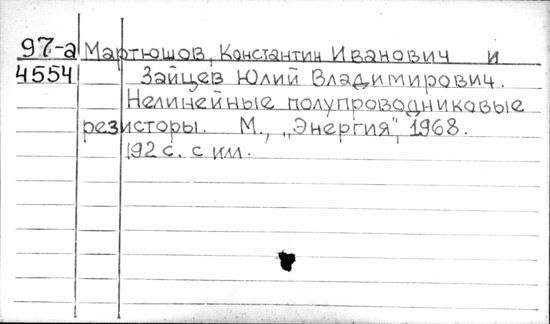 97-а Мартюшов, Константин Иванович и
4554 Зайцев Юлий Владимирович.
Нелинейные полупроводниковые
резисторы. М., „Энергия", 1968.
192 с. с ил.